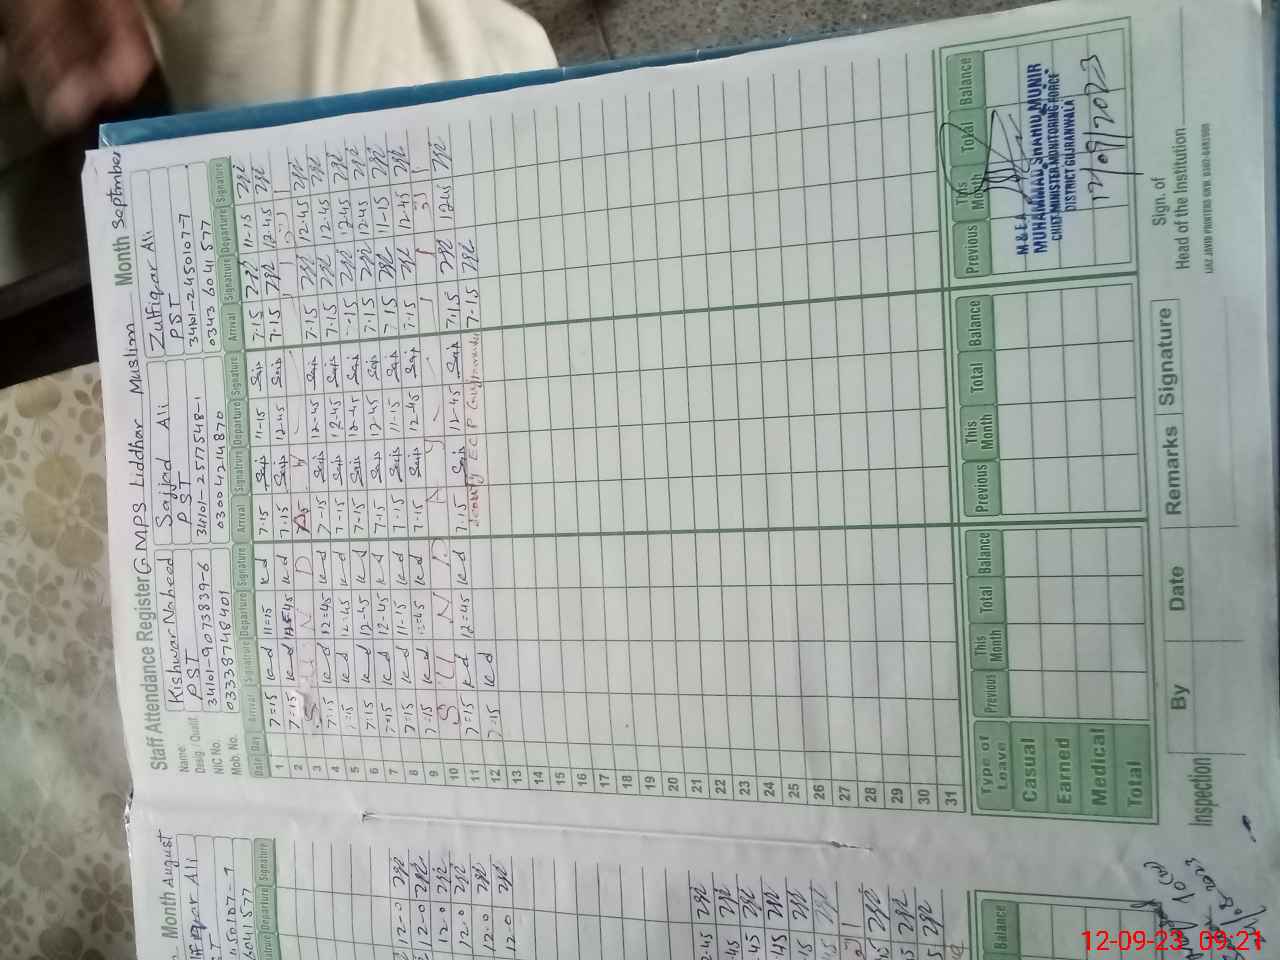 Staff Attendance Register G. MPS Liddhar Muslim Month September
Name Kishwar Naheed Sajjad Ali Zulfiqar Ali
Desig. / Qualif. PST PST PST
NIC No. 34101-9073839-6 34101-2517548-1 34101-2450107-7
Mob. No. 03338748401 03004214870 0343 6041577
Date Day Arrival Signature Departure Signature Arrival Signature Departure Signature Arrival Signature Departure Signature
1 7=15 K-d 11=15 K-d 7-15 Saj 11-15 Saj 7.15 11-15
2 7=15 K-d 12=45 K-d 7-15 Saj 12-45 Saj 7.15 12.45
3 S U N D A Y
4 7=15 K-d 12=45 K-d 7-15 Saj 12-45 Saj 7.15 12.45
5 7=15 K-d 12=45 K-d 7-15 Saj 12-45 Saj 7.15 12.45
6 7=15 K-d 12=45 K-d 7-15 Saj 12-45 Saj 7.15 12.45
7 7=15 K-d 12=45 K-d 7-15 Saj 12-45 Saj 7.15 12.45
8 7=15 K-d 11-15 K-d 7-15 Saj 11-15 Saj 7.15 11-15
9 7=15 K-d 12=45 K-d 7-15 Saj 12-45 Saj 7.15 12.45
10 S U N D A Y
11 7=15 K-d 12=45 K-d 7.15 Saj 12-45 Saj 7.15 12.45
12 7=15 K-d E C P 7.15
13
14
15
16
17
18
19
20
21
22
23
24
25
26
27
28
29
30
31
Type of Leave Previous This Month Total Balance Previous This Month Total Balance Previous This Month Total Balance
Casual
Earned
Medical
Total
M & E A
MUHAMMAD SHAHID MUNIR
CHIEF MINISTER MONITORING FORCE
DISTRICT GUJRANWALA
12/09/2023
Inspection By Date Remarks Signature
Sign. of
Head of the Institution
Month August
Ali
450107-7
6041577
Departure Signature
12-0
12-0
12-0
12.0
12.0
12.0
Balance
12-09-23 09:21